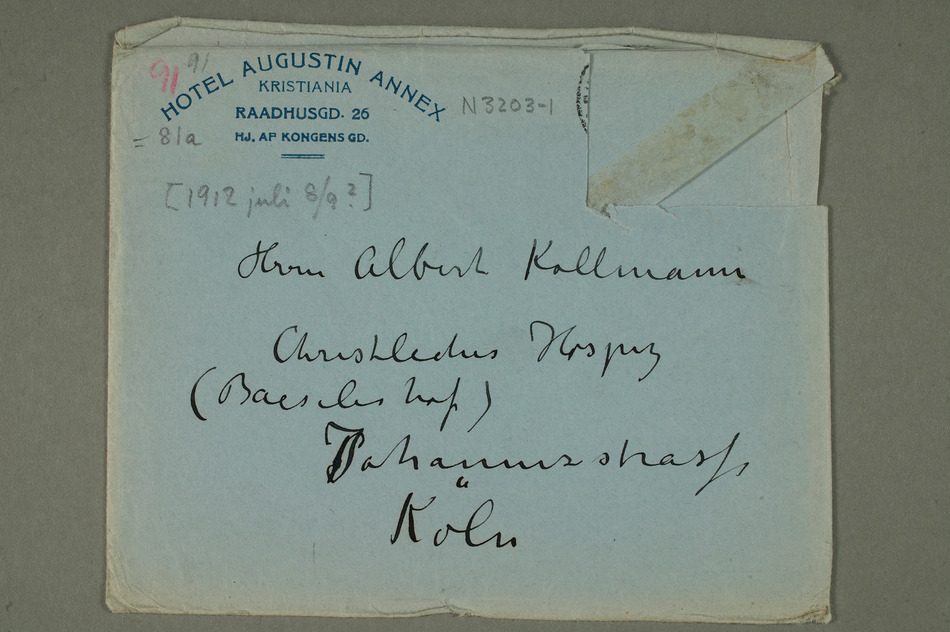 91 91
HOTEL AUGUSTIN ANNEX
KRISTIANIA
RAADHUSGD. 26
HJ. AF KONGENS GD.
= 81a
N3203-1
[1912 juli 8/9?]
Herrn Albert Kollmann
Christliches Hospiz
(Baeseler hof)
Johannisstrasse
Köln